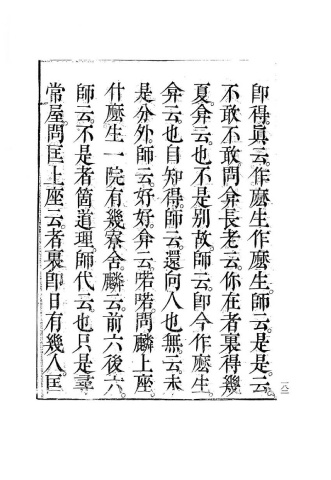 卽得。眞云。作麼生作麼生。師云。是是。云。
不敢不敢。問弇長老云。你在者裏得幾
夏。弇云。也不是別故。師云。卽今作麼生。
弇云。也自知得。師云。還向人也無。云。未
是分外。師云。好好。弇云。喏喏。問麟上座。
什麼生一院有幾寮舍。麟云。前六後六。
師云。不是者箇道理。師代云。也只是尋
常屋。問匡上座云。者裏卽日有幾人。匡
一八二